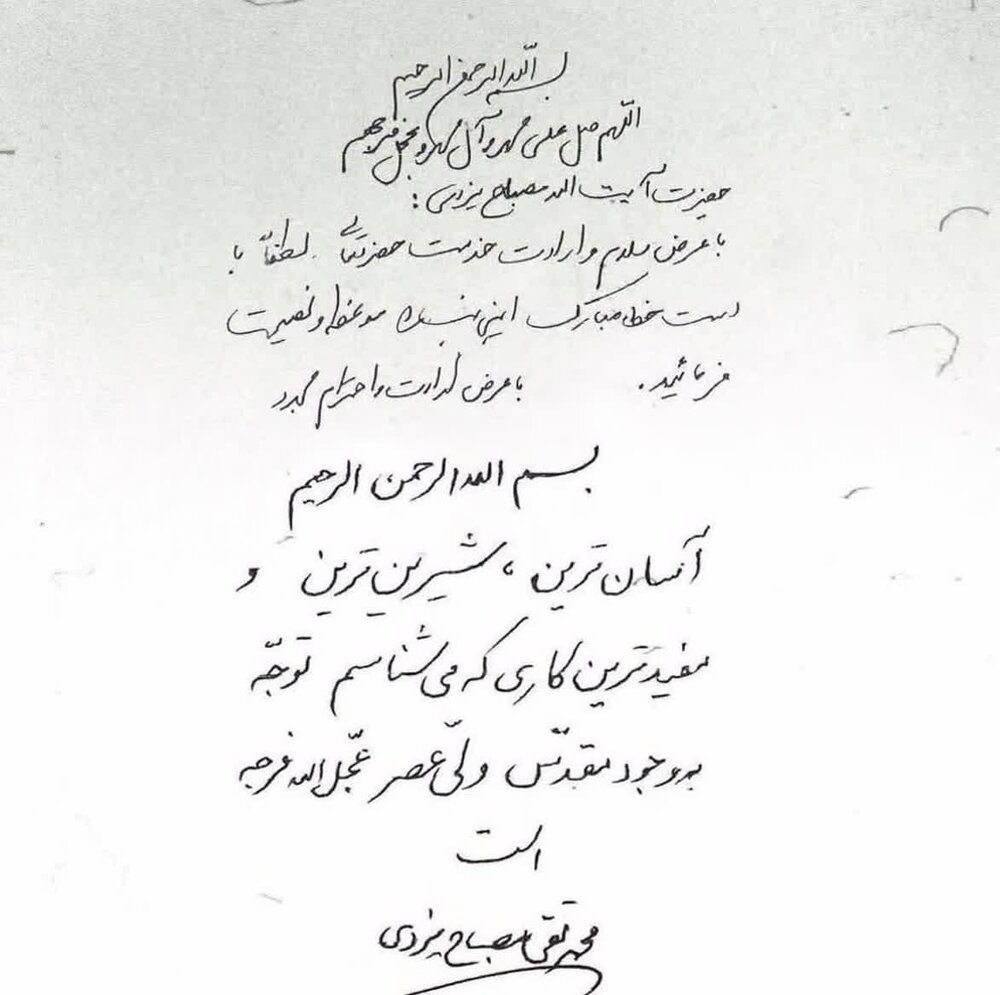 بسم الله الرحمن الرحیم
اللهم صل علی محمد و آل محمد و عجل فرجهم
حضرت آیت الله مصباح یزدی :
با عرض سلام و ارادت خدمت حضرتعالی . لطفاً با
دست خط مبارک این بنده موعظه و نصیحت
فرمائید . با عرض ارادت و احترام
بسم الله الرحمن الرحیم
آسان ترین ، شیرین ترین و
مفیدترین کاری که می شناسم توجّه
به وجود مقدّس ولیّ عصر عجّل الله فرجه
است
محمد تقی مصباح یزدی